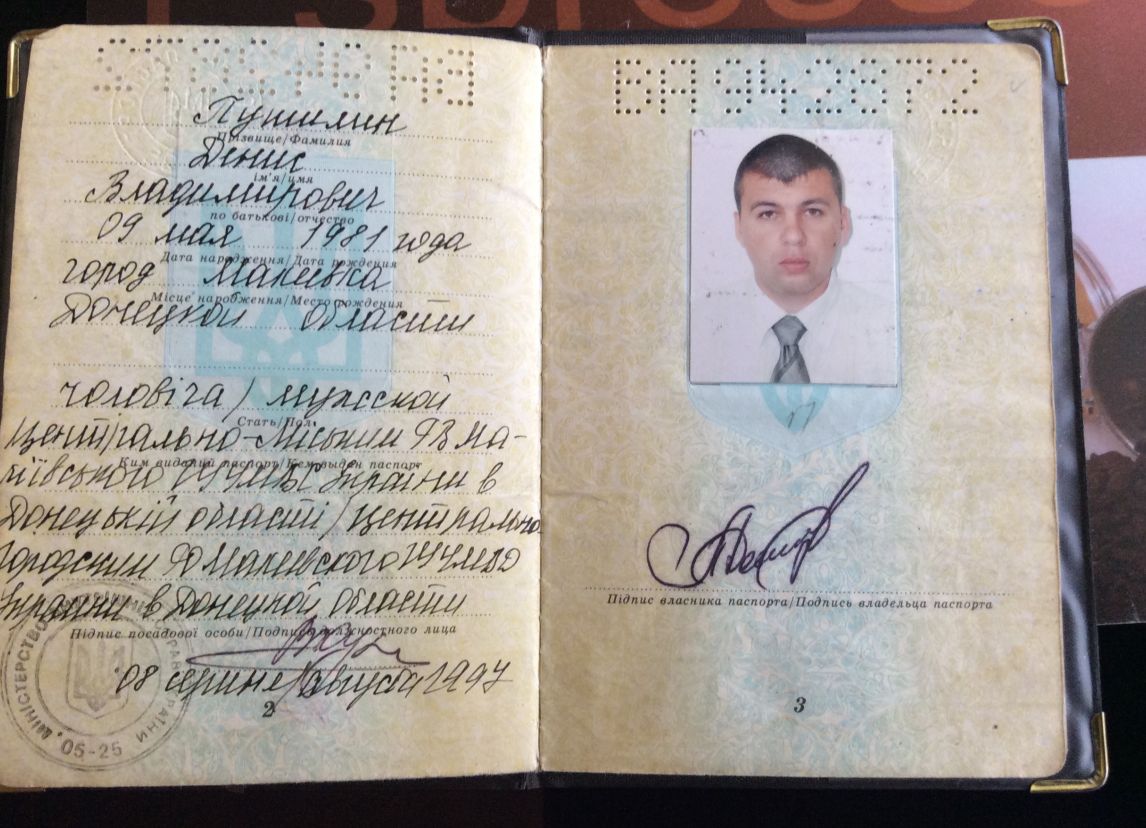 Пушилин
Прізвище/Фамилия
Денис
ім'я/имя
Владимирович
по батькові/отчество
09 мая 1981 года
Дата народження/Дата рождения
город Макеевка
Місце народження/Место рождения
Донецкой области
чоловіча/мужской
Стать/Пол
Центрально-міським РВ Ма-
Ким виданий паспорт/Кем выдан паспорт
кіївського України в
Донецькій області/центрально
городским РО Макеевского
Украины в Донецкой области
Підпис посадової особи/Подпись должностного лица
08 серпня/августа 1997
2
05-25
ВА942972
Підпис власника паспорта/Подпись владельца паспорта
3